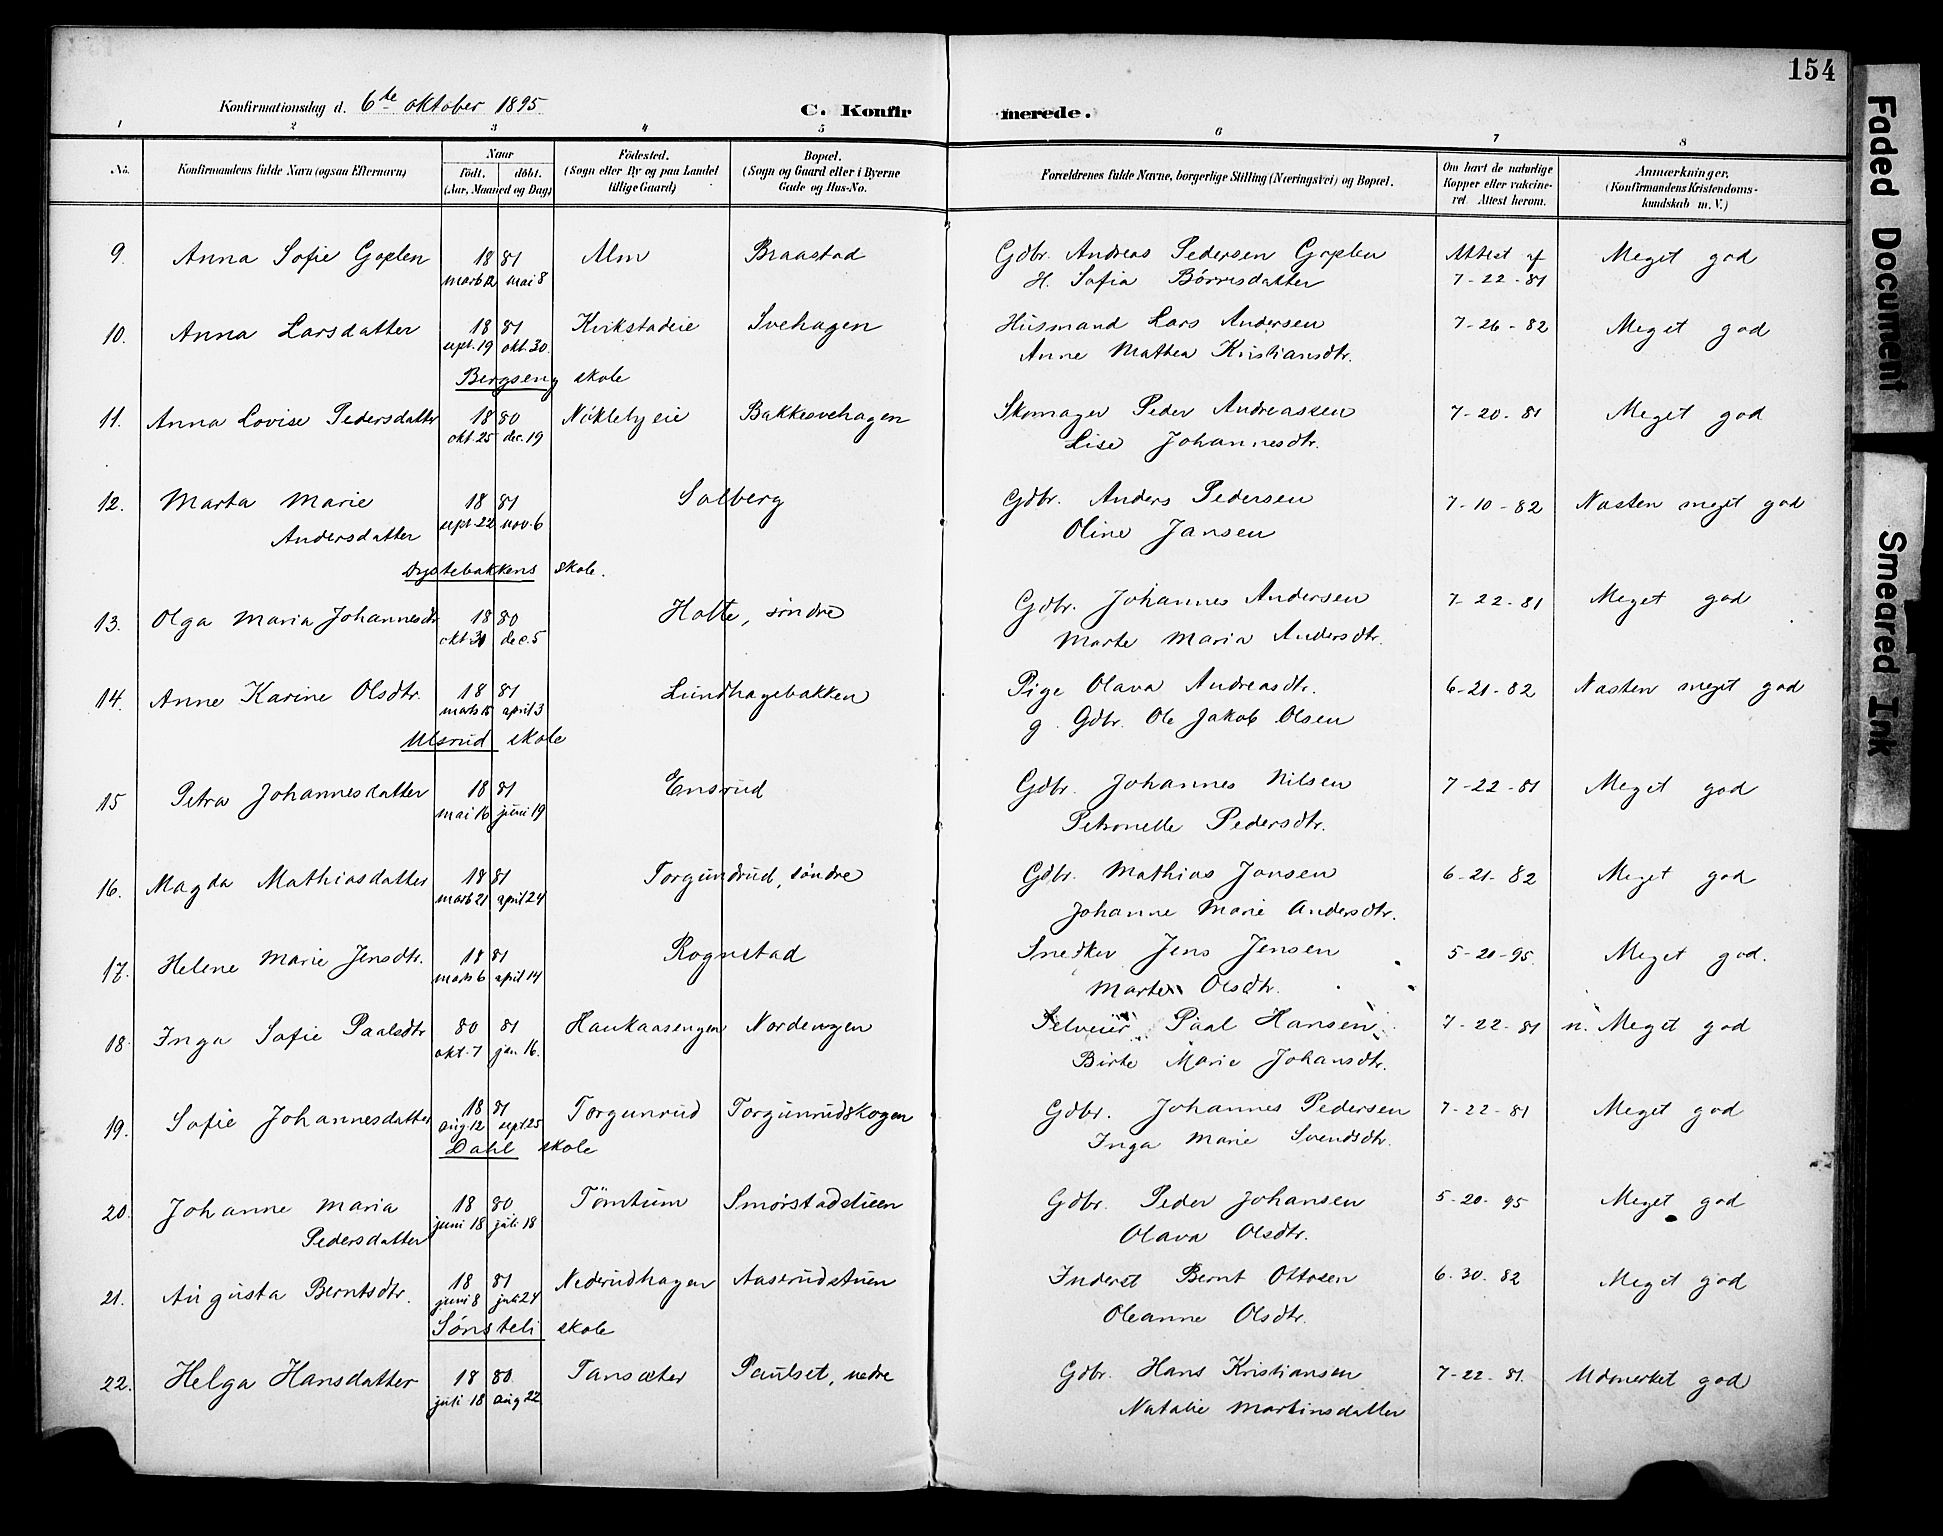 154
Konfirmationsdag d. 6te oktober 1895
C. Konfirmerede.
1 2 3 4 5 6 7 8
No.
Konfirmandens fulde Navn (ogsaa Efternavn)
Naar
födt. döbt.
(Aar, Maaned og Dag)
Födested.
(Sogn eller By og paa Landet
tillige Gaard)
Bopæl.
(Sogn og Gaard eller i Byerne
Gade og Hus-No.
Forældrenes fulde Navne, borgerlige Stilling (Næringsvei) og Bopæl.
Om havt de naturlige
Kopper eller vakcine-
ret. Attest herom.
Anmærkninger.
(Konfirmandens Kristendoms-
kundskab m. V.)
9. Anna Sofie Goplen 18 81 Alm Braastad Gdbr. Andreas Pedersen Goplen Attest af Meget god
marts 12 mai 8 H. Sofia Børresdatter 7-22-81
10. Anna Larsdatter 18 81 Kvikstadeie Svehagen Husmand Lars Andersen 7-26-82 Meget god
sept. 19 okt. 30. Anne Mathea Kristiansdtr.
Bergseng skole
11. Anna Lovise Pedersdatter 18 80 Nøklebyeie Bakkesvehagen Skomager Peder Andreassen 7-20-81 Meget god
okt. 25 dec. 19 Lise Johannesdtr.
12. Marta Marie 18 81 Solberg Gdbr. Anders Pedersen 7-10-82 Næsten meget god
Andersdatter sept. 22 nov. 6 Oline Jansen
Dystebakkens skole.
13. Olga Maria Johannesdtr 18 80 Holte, søndre Gdbr. Johannes Andersen 7-22-81 Meget god
okt. 30 dec. 5 Marte Maria Andersdtr.
14. Anne Karine Olsdtr. 18 81 Lundhagebakken Pige Olava Andreasdtr. 6-21-82 Næsten meget god
marts 15 april 3 g. Gdbr. Ole Jakob Olsen
Ulsrud skole
15 Petra Johannesdatter 18 81 Ensrud Gdbr. Johannes Nilsen 7-22-81 Meget god
mai 16 juni 19 Petronelle Pedersdtr.
16. Magda Mathiasdatter 18 81 Torgundrud, søndre Gdbr. Mathias Jansen 6-21-82 Meget god
marts 21 april 24 Johanne Marie Andersdtr.
17. Helene Marie Jensdtr. 18 81 Rognstad Snedker Jens Jensen 5-20-95 Meget god.
marts 6 april 14 Marte Olsdtr.
18. Inga Sofie Paalsdtr 80 81 Haukaasengen Nordengen Selveier Paal Hansen 7-22-81 n. Meget god
okt. 7 jan. 16. Birte Marie Johansdtr.
19. Sofie Johannesdatter 18 81 Torgunrud Torgunrudskogen Gdbr. Johannes Pedersen 7-22-81 Meget god
aug. 12 sept. 25 Inga Marie Svendsdtr.
Dahl skole
20. Johanne Maria 18 80 Tømtum Smørstadstuen Gdbr. Peder Johansen 5-20-95 Meget god
Pedersdatter juni 18 juli 18 Olava Olsdtr.
21. Augusta Berntsdtr. 18 81 Nederudhagen Aaserudstuen Inderst Bernt Ottosen 6.30.82 Meget god
juni 8 juli 24 Oleanne Olsdtr.
Sønsteli skole
22. Helga Hansdatter 18 80. Tansæter Paulset, nedre Gdbr. Hans Kristiansen 7-22-81. Udmerket god
juli 18 aug 22 Natalie Martinsdatter
Faded Document
Smeared Ink